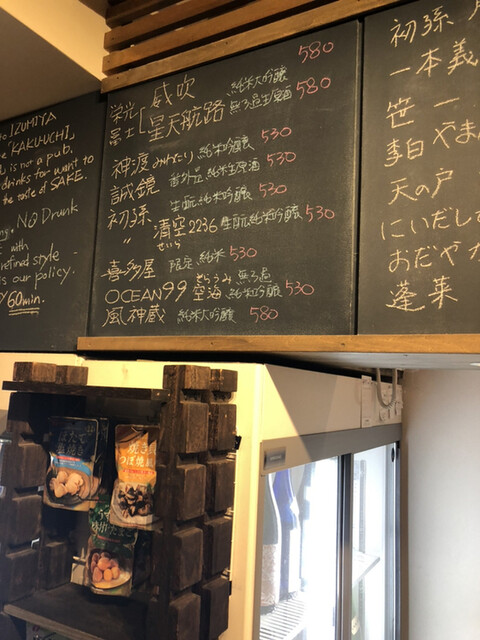 to IZUMIYA
"KAKU-UCHI"
is not a pub.
drinks for want to
the taste of SAKE.
NO Drunk
with
refined style
is our policy.
60min.
栄光 威吹 純米大吟醸 580
冨士 星天航路 無ろ過生原酒 580
神渡 みわたり 純米吟醸 530
誠鏡 番外品 純米生原酒 530
初孫 生酛純米吟醸 530
〃 清空 2236 生酛純米吟醸 530
せいら
喜多屋 限定 純米 530
OCEAN99 空海 無ろ過 純米吟醸 530
そらうみ
風神蔵 純米大吟醸 580
初孫
一本義
笹一
李白 やまた
天の戸
にいだし
おだやか
蓬莱
つぼ焼風